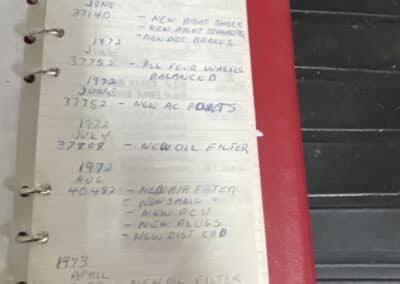 JUNE
37140 - NEW RIGHT SHOES
- NEW RIGHT
1972 - NEW DISC BRAKES
JUNE
37752 - ALL FOUR WHEELS
1972 BALANCED
JUNE
37752 - NEW AC
1972
JULY
37808 - NEW OIL FILTER
1972
AUG
40,482 - NEW AIR FILTER
- NEW SMALL
- NEW ACU
- NEW PLUGS
- NEW DIST CAP
1973
APRIL
- NEW OIL FILTER